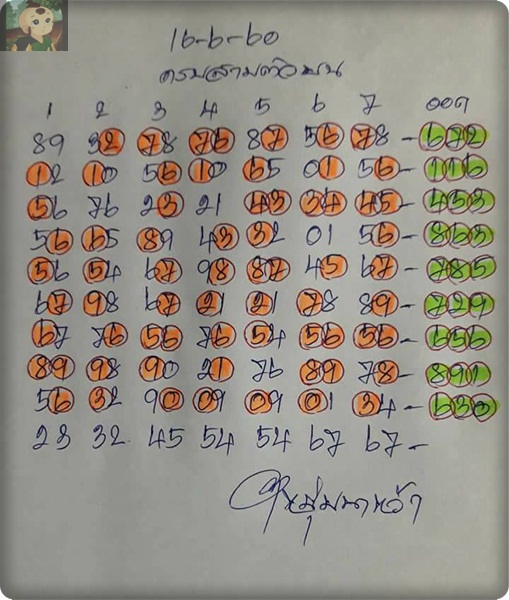 16-6-60
ครบสามตัวบน
1 2 3 4 5 6 7 ออก
89 32 78 76 87 56 78 - 672
12 10 56 10 65 01 56 - 116
56 76 23 21 43 34 45 - 453
56 65 89 43 32 01 56 - 863
56 54 67 98 87 45 67 - 785
67 98 67 21 21 78 89 - 729
67 76 56 76 54 56 56 - 656
89 98 90 21 76 89 78 - 891
56 32 90 09 09 01 34 - 630
23 32 45 54 54 67 67 -